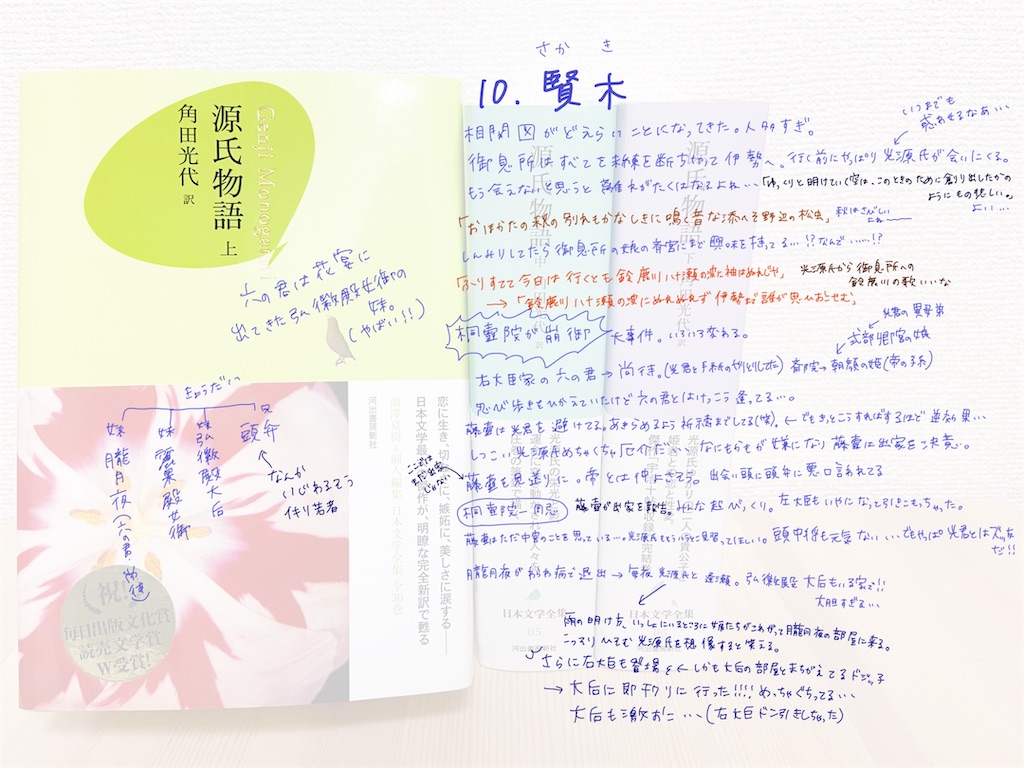 さかき
10. 賢木
相関図がどえらいことになってきた。人多すぎ。
いつまでも
惑わせるなあ…
御息所はすべて未練を断ち切って伊勢へ。行く前にやっぱり光源氏が会いにくる。
もう会えないと思うと離れがたくはなるよね…「ゆっくりと明けていく空は、このときのために創り出したかの
ようにもの悲しい。」
よい…
「おほかたの秋の別れもかなしきに鳴く音な添へそ野辺の松虫」
秋はさびしい
よね〜
しんみりしてたら御息所の娘の斎宮にまで興味を持ってる…!?なんで……!?
「ふりすてて今日は行くとも鈴鹿川八十瀬の波に袖はぬれじや」
光源氏から御息所への
鈴鹿川の歌いいな
→「鈴鹿川八十瀬の波にぬれぬれず伊勢まで誰が思ひおこせむ」
桐壺院が崩御
大事件。いろいろ変わる。
父君の異母弟
式部卿宮の娘
右大臣家の六の君→尚侍。(光君と手紙のやりとりしてた)斎院→朝顔の姫(帝の子孫)
忍び歩きをひかえていたけど六の君とはけっこう逢ってる…。
藤壺は光君を避けてる。あきらめるよう祈祷までしてる(笑)。←でもきっとこうすればするほど逆効果…
しつこい光源氏めちゃくちゃ厄介だ…なにもかもが嫌になり藤壺は出家を決意。
ここではまだ出家じゃない
藤壺も里送りに。帝とは仲よさそう。出会い頭に頭弁に悪口言われてる
桐壺院一周忌
藤壺が出家を報告。みんな超びっくり。左大臣もいやになって引きこもっちゃった。
藤壺はただ中宮のことを思っている…。光源氏ももうちょっと見習ってほしい。頭中将も元気ない…でもやっぱ光君とはズッ友
だ!!
朧月夜がわらわ病で退出→毎夜光源氏と逢瀬。弘徽殿大后もいる家で!!
大胆すぎる…
雨の明け方、いっしょにいるところに女房たちがこわがって朧月夜の部屋に来る。
こっそりひそむ光源氏を想像すると笑える。
さらに右大臣も登場←しかも大后の部屋とまちがえてるドジッ子
→大后に即チクりに行った!!!!めっちゃぐちってる…
大后も激おこ…(右大臣ドン引きしちゃった)
源氏物語 上
角田光代 訳
Genji Monogatari
六の君は花宴に
出てきた弘徽殿女御の
妹。
(やばい!!)
きょうだい
兄 頭弁
妹 弘徽殿大后
妹 麗景殿女御
妹 朧月夜(六の君・尚侍)
なんか
いじわるそう
作り笑者
恋に生き、切
に、嫉妬に、美しさに涙する――
日本文学最
作が、明瞭な完全新訳で甦る
池澤夏樹=個人編集 日本文学全集 全30巻
河出書房新社
祝!
毎日出版文化賞
読売文学賞
W受賞!
日本文学全集
05
河出書房新社
日本文学全集